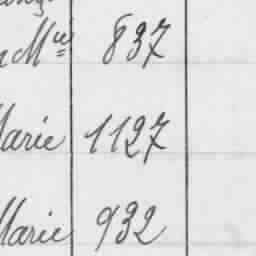 Mie 837
Marie 1127
Marie 932